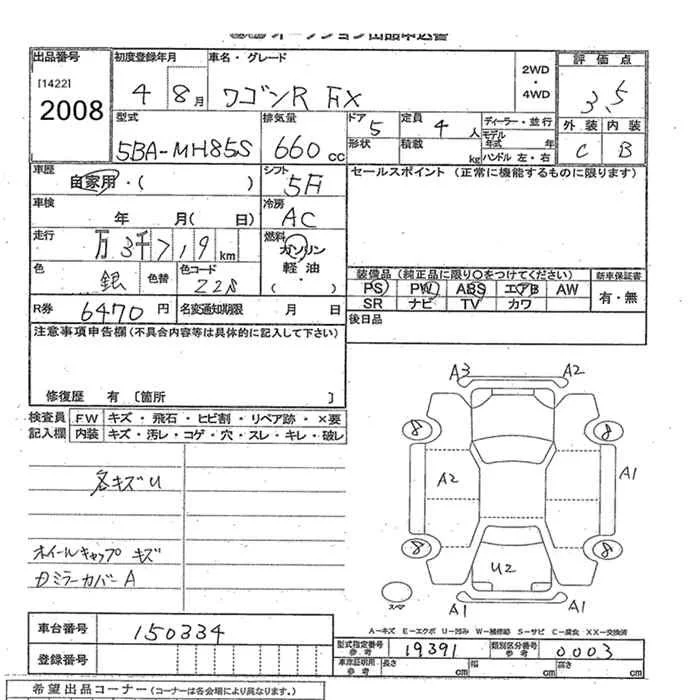 オークション出品申込書
出品番号 初度登録年月 車名・グレード 2WD・4WD 評価点
[1422]
2008
4 8月 ワゴンR FX
3.5
型式 排気量 ドア 定員 ディーラー・並行 外装 内装
5BA-MH85S 660cc 5 4人 モデル年式 年 C B
形状 積載 kg ハンドル 左・右
車歴 シフト セールスポイント (正常に機能するものに限ります)
自家用・( ) 5F
車検 冷房
年 月( 日) AC
走行 燃料
万3千719km ガソリン
軽油
( ・ )
色 色替 色コード
銀 Z2S
装備品 (純正品に限り○をつけてください) 新車保証書
PS PW ABS エアB AW 有・無
SR ナビ TV カワ
R券 6470円 名変通知期限 月 日 後日品
注意事項申告欄(不具合内容等は具体的に記入して下さい)
修復歴 有 [箇所 ]
検査員 FW キズ・飛石・ヒビ割・リペア跡・×要
記入欄 内装 キズ・汚レ・コゲ・穴・スレ・キレ・破レ
各キズU
ホイールキャップ キズ
Dミラーカバー A
A3 A2
8 8
A2 A1
8 8
U2
スペア A1 A1
A-キズ E-エクボ U-凹み W-補修跡 S-サビ C-腐食 XX-交換済
車台番号 150334
型式指定番号 参考 19391 類別区分番号 参考 0003
登録番号
車庫証明用 参考 長さ cm 幅 cm 高さ cm
希望出品コーナー (コーナーは各会場により異なります。)